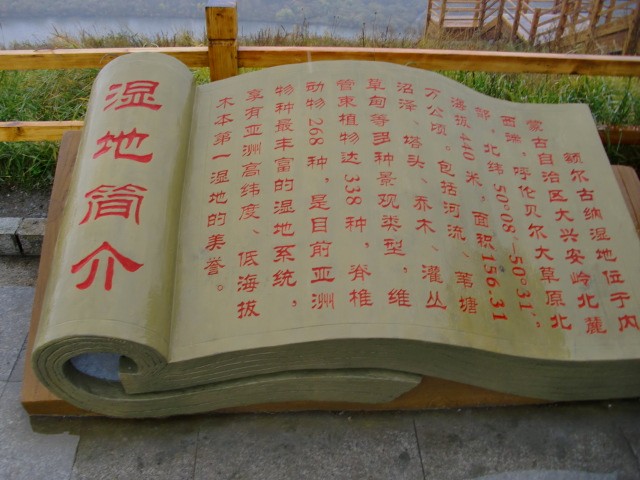 湿地简介
额尔古纳湿地位于内
蒙古自治区大兴安岭北麓
西端，呼伦贝尔大草原北
部，北纬50°08′—50°31″，
海拔440米，面积156.31
万公顷。包括河流、苇塘
沼泽、塔头、乔木、灌丛
草甸等多种景观类型，维
管束植物达338种，脊椎
动物268种，是目前亚洲
物种最丰富的湿地系统，
享有亚洲高纬度、低海拔
木本第一湿地的美誉。